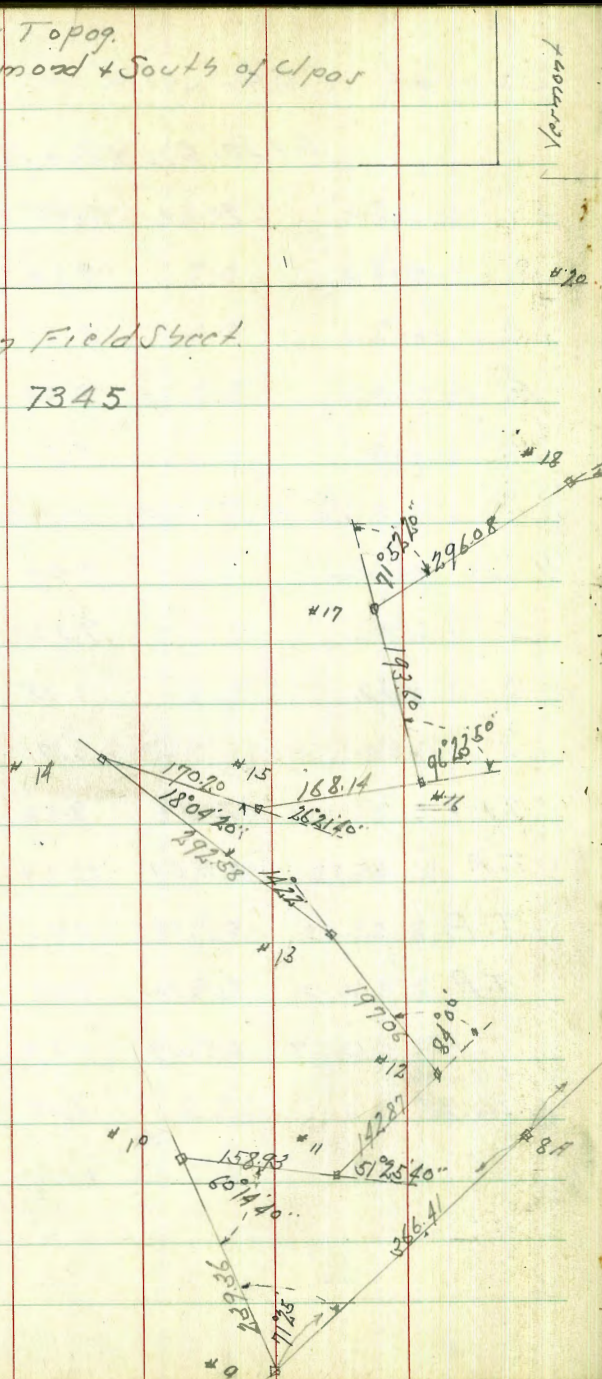 Topog.
& South of
Vermont
#20
Field Sheet.
7345
#18
71°52'20"
296.08
#17
193.60
96°23'50"
#14
170.20
#15
168.14
#16
18°04'20"
26°21'40"
292.58
14°22'
#13
197.06
84°06'
#12
142.87
#10
158.93
#11
51°25'40"
#8A
60°14'40"
366.41
239.36
71°25'
#9